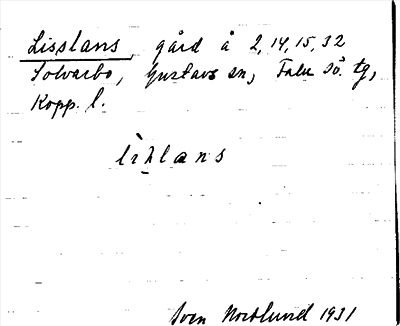 Lisslans, gård å 2, 14, 15, 32
Solvarbo, Gustavs sn, Falu sö. tg,
Kopp. l.
lìḥlans
Sven Norrlund 1931